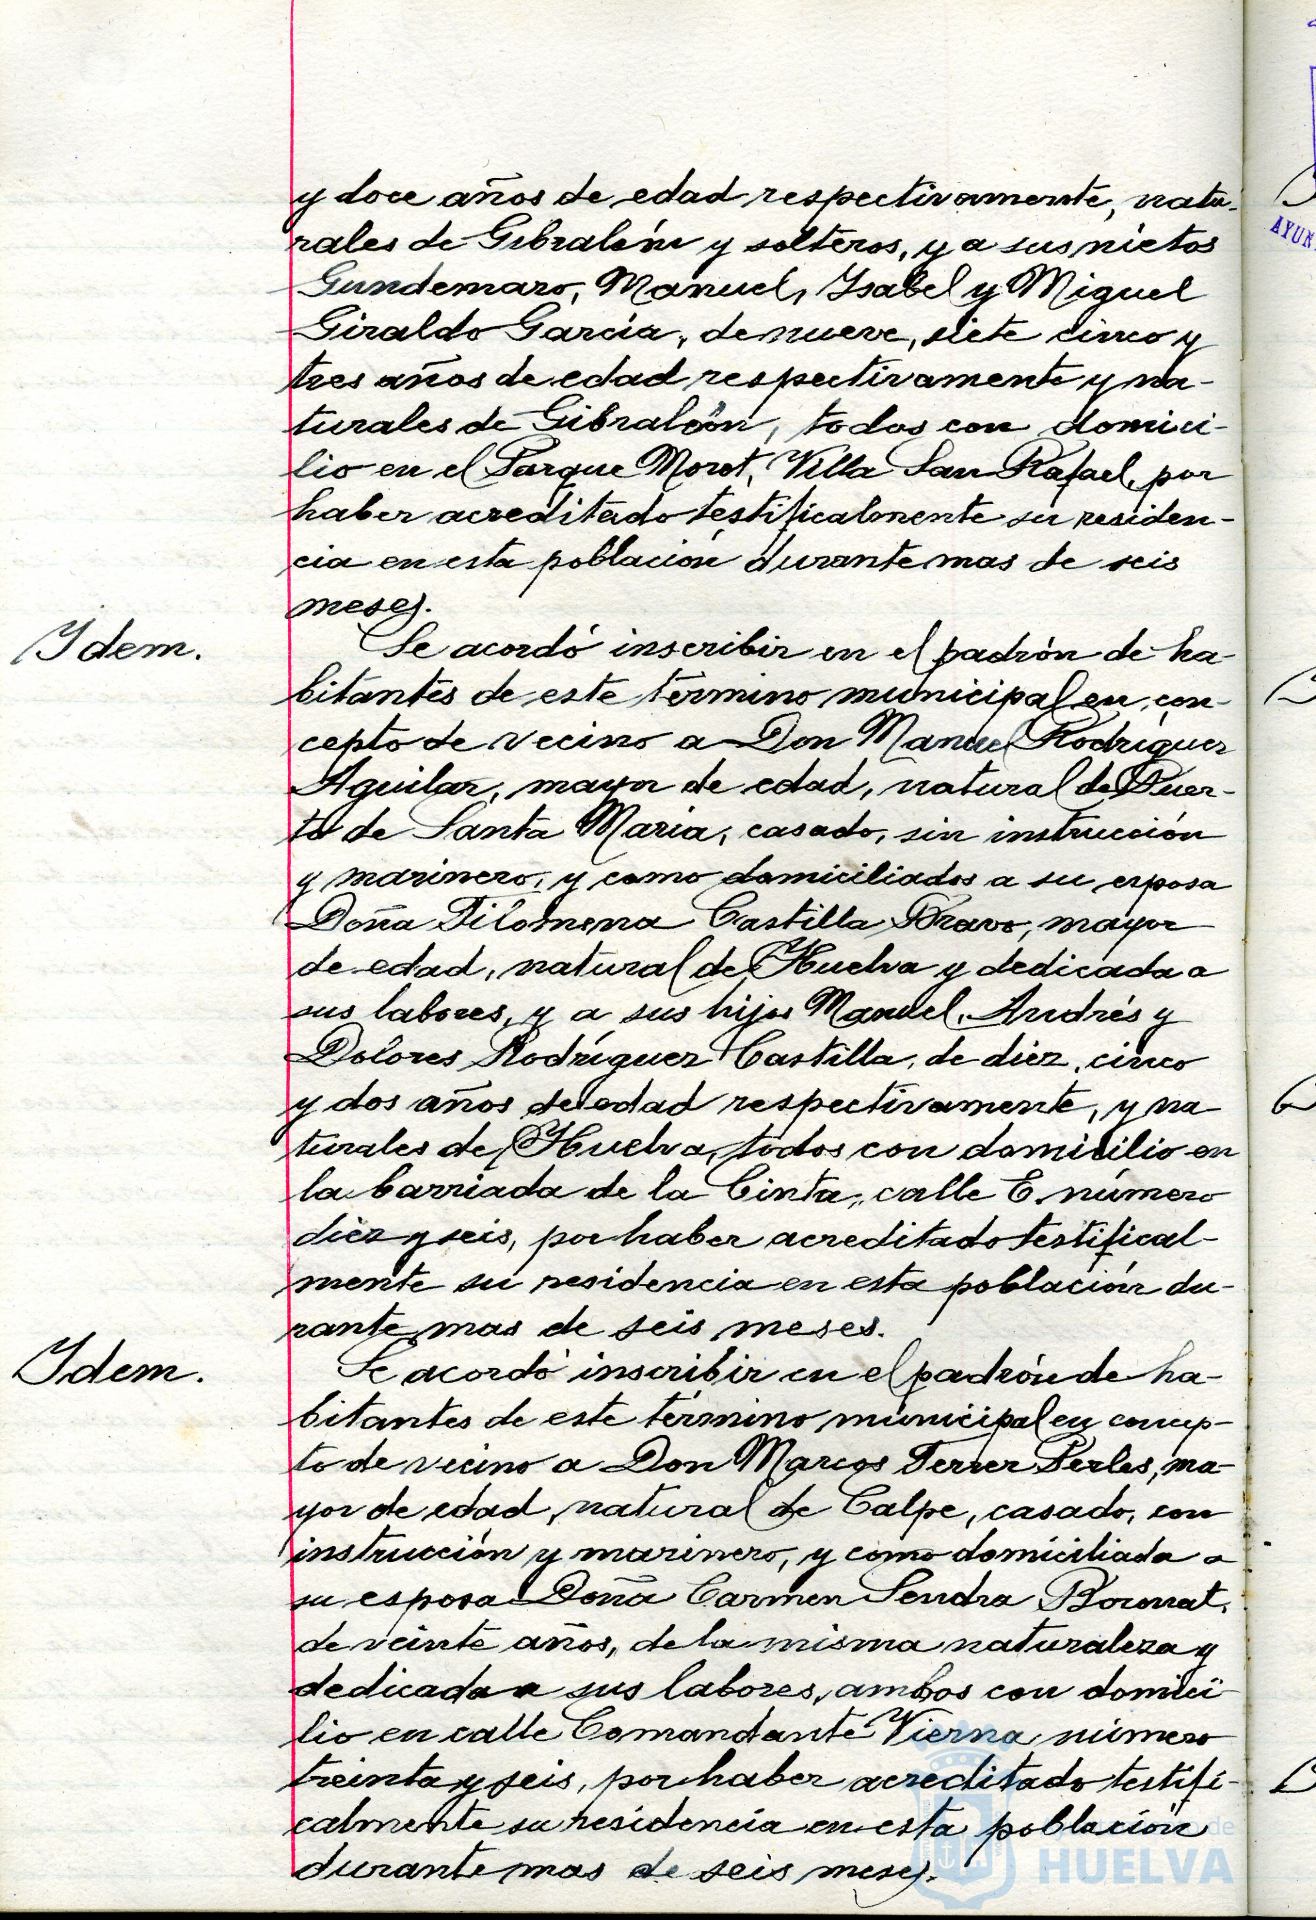 y doce años de edad respectivamente, natu-
rales de Gibraleón y solteros, y a sus nietos
Gundemaro, Manuel, Ysabel y Miguel
Giraldo García, de nueve, siete cinco y
tres años de edad respectivamente y na-
turales de Gibraleón, todos con domici-
lio en el Parque Moret, Villa San Rafael, por
haber acreditado testificalmente su residen-
cia en esta población durante mas de seis
meses.
Ydem.
Se acordó inscribir en el padrón de ha-
bitantes de este término municipal en con-
cepto de vecino a Don Manuel Rodríguez
Aguilar, mayor de edad, natural de Puer-
to de Santa María, casado, sin instrucción
y marinero, y como domiciliados a su esposa
Doña Filomena Castilla Bravo, mayor
de edad, natural de Huelva y dedicada a
sus labores, y a sus hijos Manuel, Andrés y
Dolores Rodríguez Castilla, de diez, cinco
y dos años de edad respectivamente, y na-
turales de Huelva, todos con domicilio en
la barriada de la Cinta, calle E. número
diez y seis, por haber acreditado testifical-
mente su residencia en esta población du-
rante mas de seis meses.
Ydem.
Se acordó inscribir en el padrón de ha-
bitantes de este término municipal en concep-
to de vecino a Don Marcos Ferrer Perles, ma-
yor de edad, natural de Calpe, casado, con
instrucción y marinero, y como domiciliada a
su esposa Doña Carmen Sendra Boronat,
de veinte años, de la misma naturaleza y
dedicada a sus labores, ambos con domici-
lio en calle Comandante Vierna número
treinta y seis, por haber acreditado testifi-
calmente su residencia en esta población
durante mas de seis meses.
HUELVA